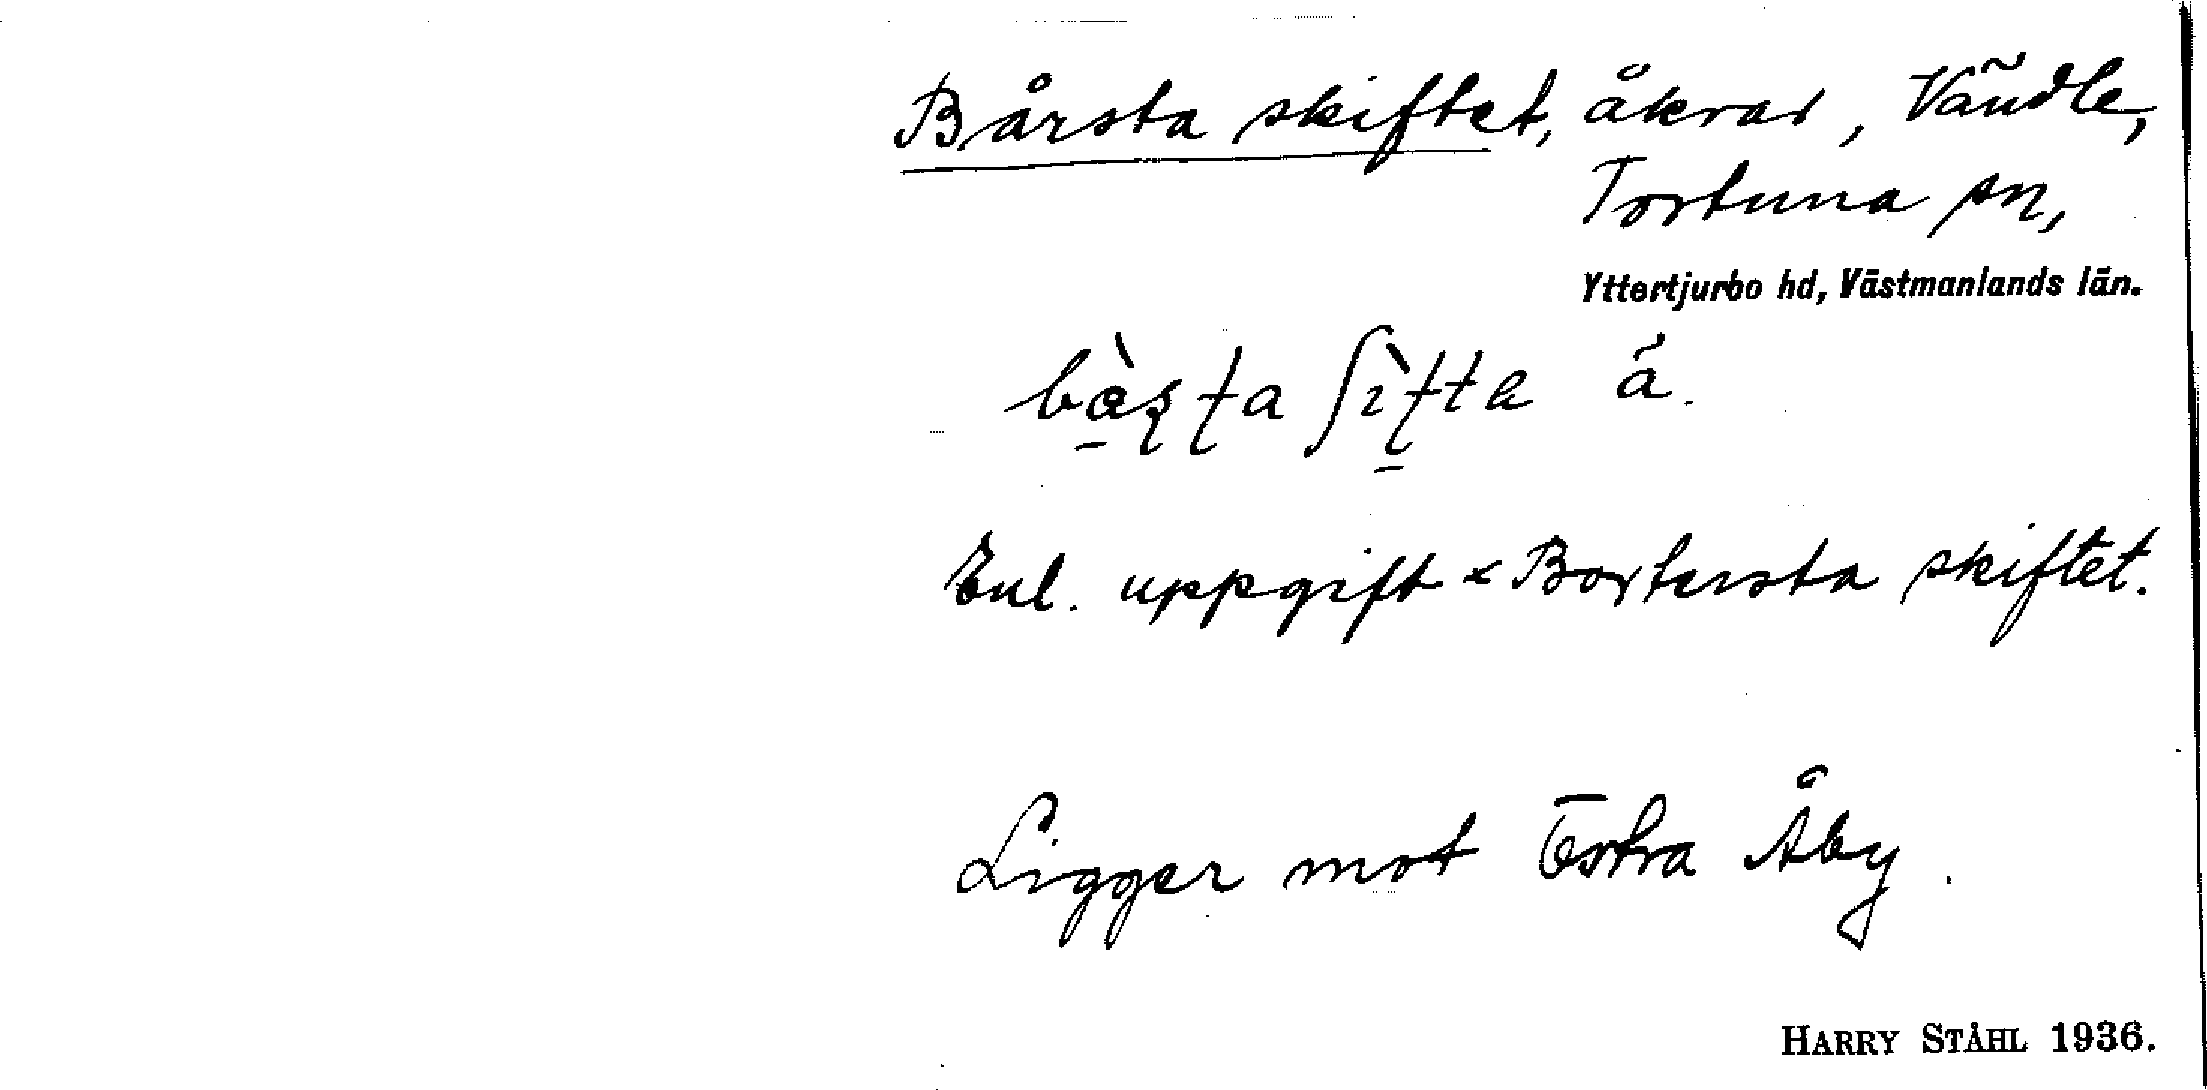 Bårsta skiftet, åkrar, Vändle,
Tortuna sn,
Yttertjurbo hd, Västmanlands län.
Enl. uppgift < Bortersta skiftet.
Ligger mot Östra Åby.
HARRY STÅHL 1936.